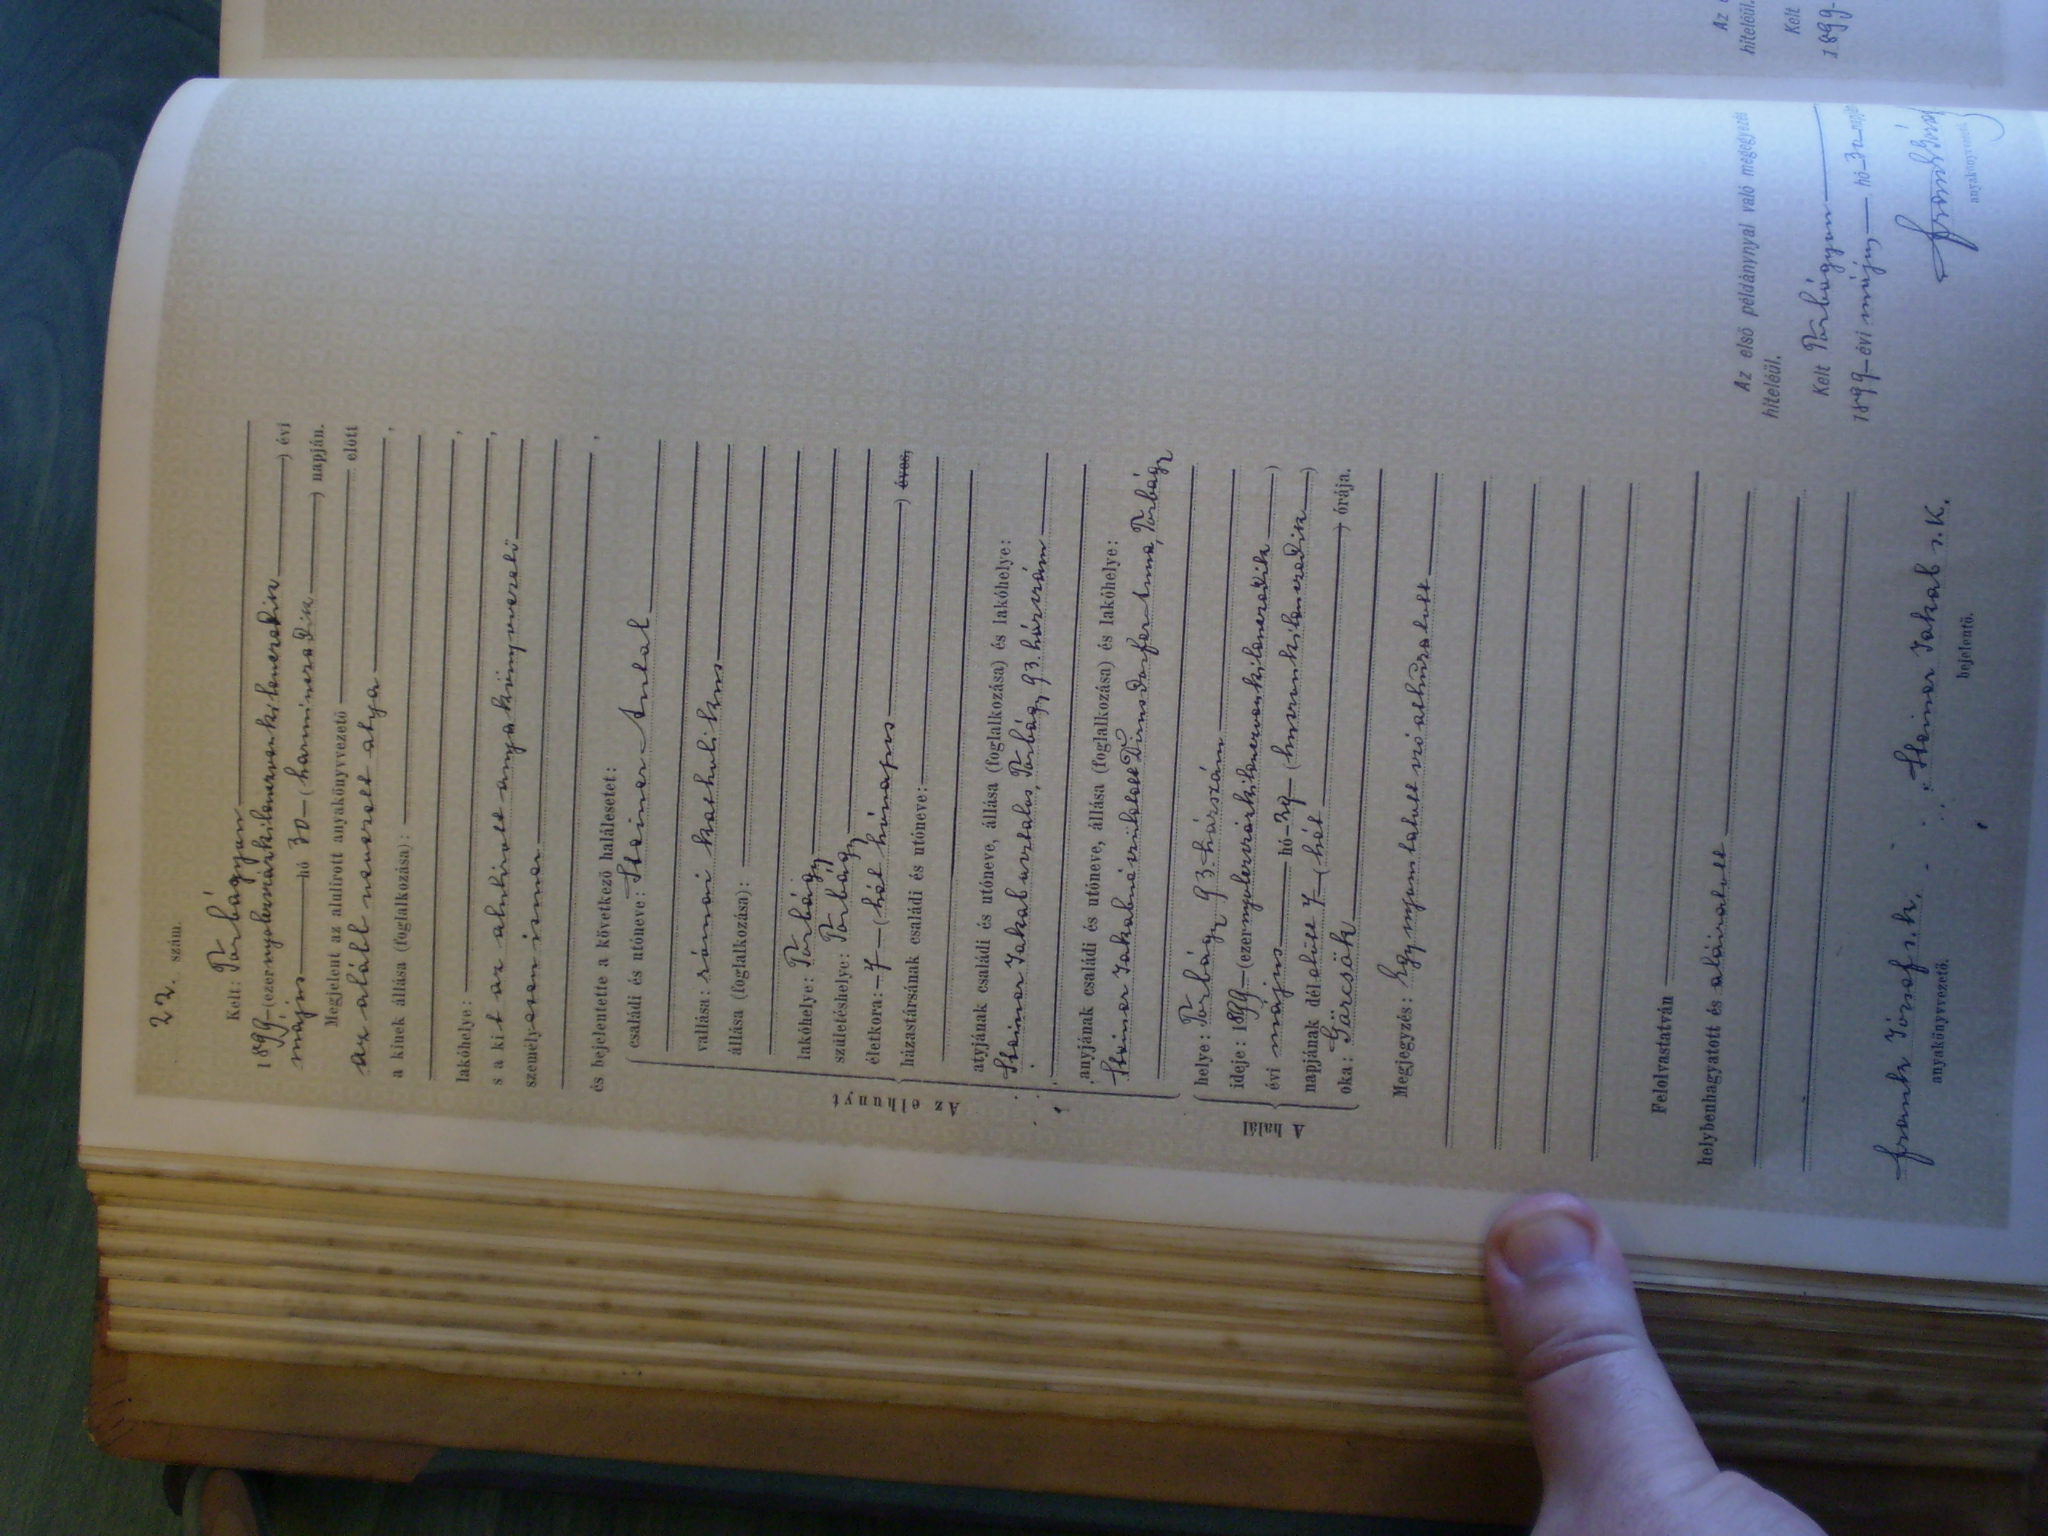 22. szám.
Kelt: Torbágyon
1899 (ezernyolczszázkilenczvenkilenczedik) évi
május hó 30 (harminczadik) napján.
Megjelent az alulirott anyakönyvezető előtt
az alább nevezett atya
a kinek állása (foglalkozása): ,
lakóhelye: ,
s a kit az alulirott anyakönyvvezető ,
személyesen ismer
és bejelentette a következő halálesetet: ,
Az elhunyt
családi és utóneve: Steiner Antal
vallása: római katholikus
állása (foglalkozása):
lakóhelye: Torbágy
születéshelye: Torbágy
életkora: 7 (hét hónapos) éves,
házastársának családi és utóneve:
atyjának családi és utóneve, állása (foglalkozása) és lakóhelye:
Steiner Jakab asztalos, Torbágy 93. házszám
anyjának családi és utóneve, állása (foglalkozása) és lakóhelye:
Steiner Jakabné született Anna, Torbágy
A halál
helye: Torbágy 93. házszám
ideje: 1899 (ezernyolczszázkilenczvenkilenczedik)
évi május hó 29 (huszonkilenczedik)
napjának délelőtt 7 (hét) órája.
oka: Görcsök
Megjegyzés: Egy nyomtatott szó áthúzatott
Felolvastatván
helybenhagyatott és aláíratott
Frank József s. k.
anyakönyvezető.
Steiner Jakab s. K.
bejelentő.
Az első példánynyal való megegyezés
hiteléül.
Kelt Torbágyon
1899 évi május hó 30 napján
Frank József
anyakönyvvezető
hiteléül.
Kelt
1899